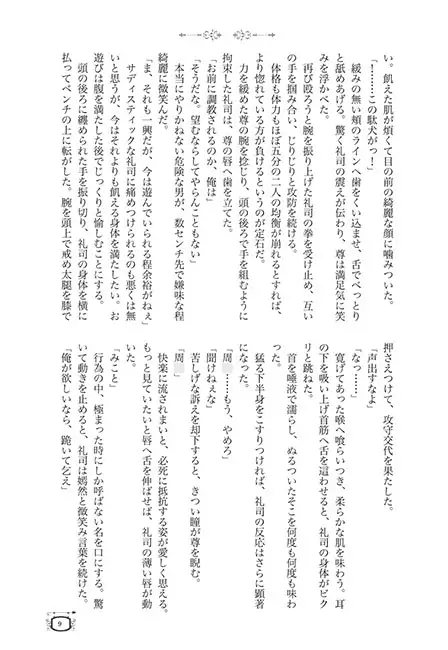 い。飢えた肌が煩くて目の前の綺麗な顔に噛みついた。
「！……この駄犬がっ！」
緩みの無い頬のラインへ歯をくい込ませ、舌でべっとり
と舐めあげる。驚く礼司の震えが伝わり、尊は満足気に笑
みを浮かべた。
再び殴ろうと腕を振り上げた礼司の拳を受け止め、互い
の手を掴み合い、じりじりと攻防を続ける。
体格も体力もほぼ五分の二人の均衡が崩れるとすれば、
より惚れている方が負けるというのが定石だ。
力を緩めた尊の腕を捻じり、頭の後ろで手を組むように
拘束した礼司は、尊の唇へ歯を立てた。
「お前に調教されるのか、俺は」
「そうだな。望むならしてやらんこともない」
本当にやりかねない危険な男が、数センチ先で嫌味な程
綺麗に微笑んだ。
「ま、それも一興だが、今は遊んでいられる程余裕がねぇ」
サディスティックな礼司に痛めつけられるのも悪くは無
いと思うが、今はそれよりも飢える身体を満たしたい。お
遊びは腹を満たした後でじっくりと愉しむことにする。
頭の後ろに纏められた手を振り切り、礼司の身体を横に
払ってベンチの上に転がした。腕を頭上で戒め太腿を膝で
押さえつけて、攻守交代を果たした。
「声出すなよ」
「なっ……」
寛げてあった喉へ喰らいつき、柔らかな肌を味わう。耳
の下を吸い上げ首筋へ舌を這わせると、礼司の身体がビク
リと跳ねた。
首を唾液で濡らし、ぬるついたそこを何度も何度も味わ
った。
猛る下半身をこすりつければ、礼司の反応はさらに顕著
になった。
「周　……もう、やめろ」
「聞けねぇな」
「周　」
苦しげな訴えを却下すると、きつい瞳が尊を睨む。
快楽に流されまいと、必死に抵抗する姿が愛しく思える。
もっと見ていたいと唇へ舌を伸ばせば、礼司の薄い唇が動
いた。
「みこと」
行為の中、極まった時にしか呼ばない名を口にする。驚
いて動きを止めると、礼司は嫣然と微笑み言葉を続けた。
「俺が欲しいなら、跪いて乞え」
9